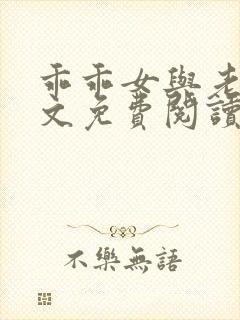 乖乖女與老
文免費閱讀
不樂無語